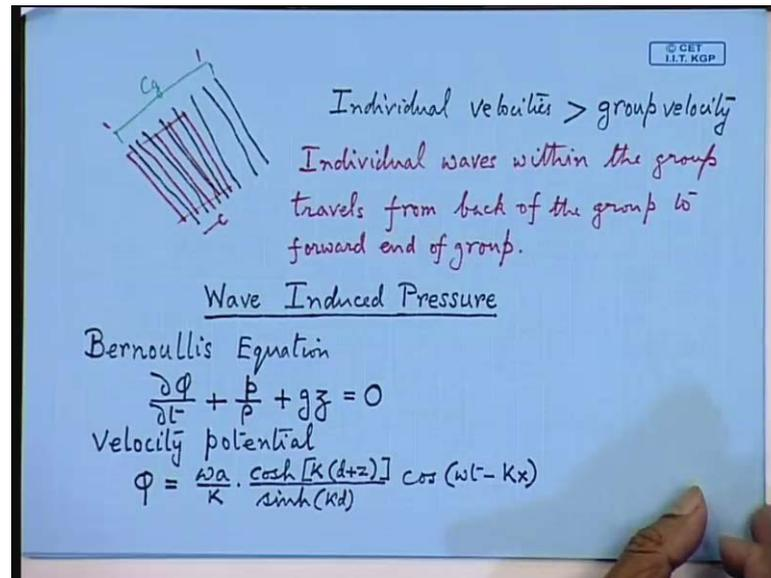 © CET
I.I.T. KGP
Cg
Individual velocities > group velocity
Individual waves within the group
travels from back of the group to
forward end of group.
c
Wave Induced Pressure
Bernoullis Equation
∂φ/∂t + p/ρ + gz = 0
Velocity potential
φ = ωa/k · cosh [k(d+z)]/sinh(kd) cos (ωt - kx)